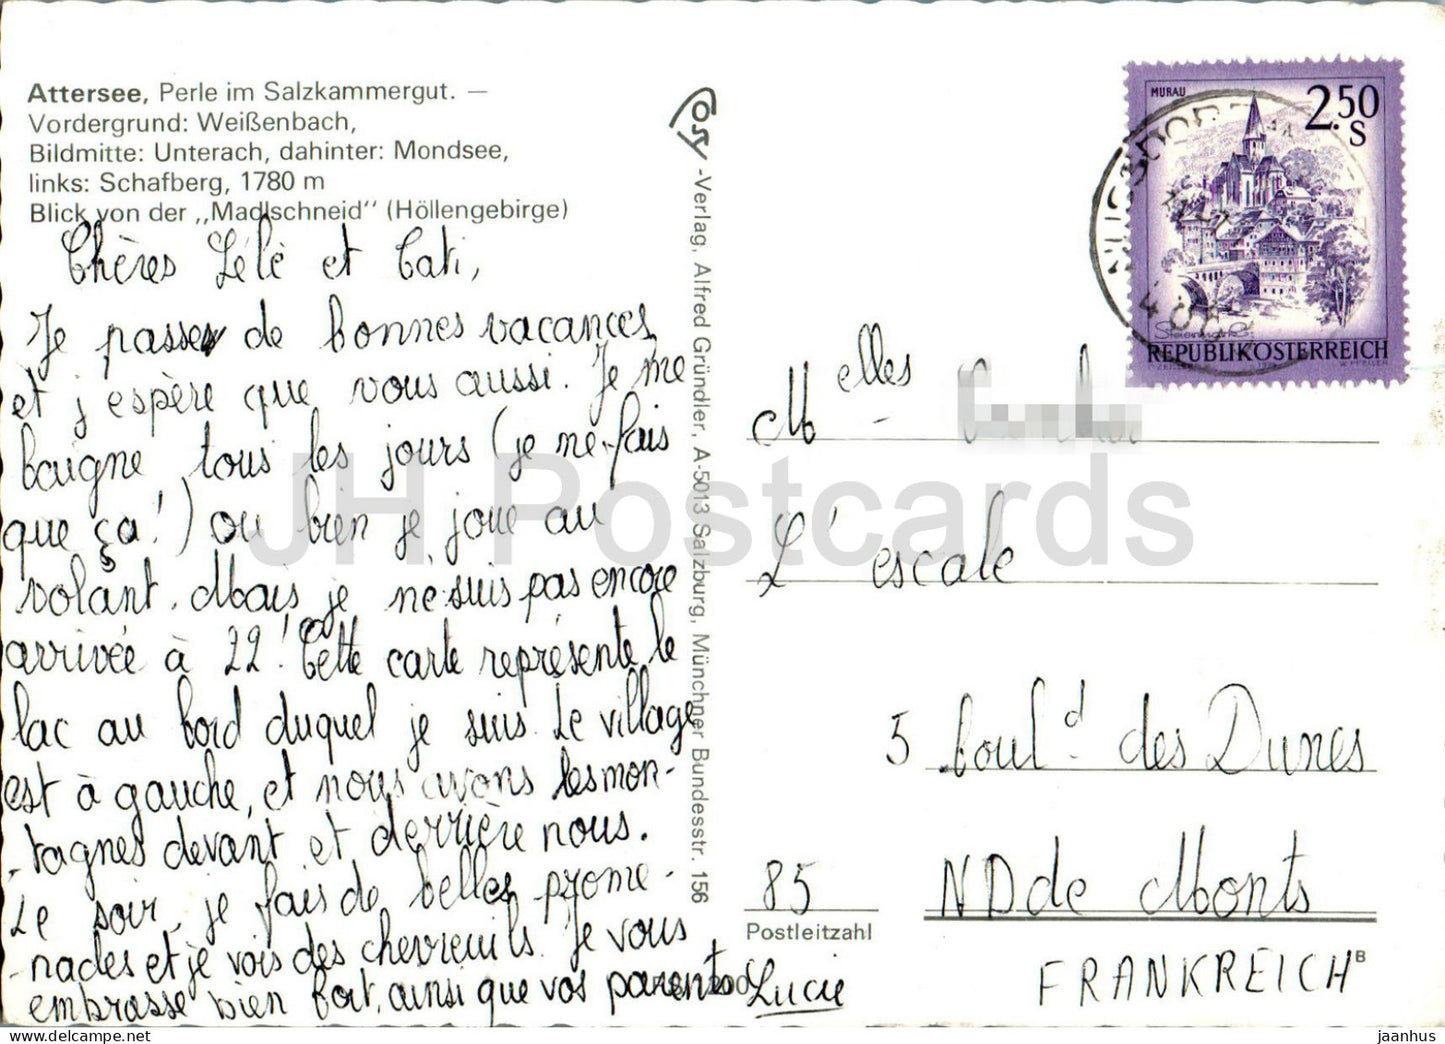 Attersee, Perle im Salzkammergut. —
Vordergrund: Weißenbach,
Bildmitte: Unterach, dahinter: Mondsee,
links: Schafberg, 1780 m
Blick von der „Madlschneid" (Höllengebirge)
Chères Lélé et Cati,
Je passe de bonnes vacances
et j'espère que vous aussi. Je me
baigne tous les jours (je ne fais
que ça!) ou bien je joue au
volant. Mais je ne suis pas encore
arrivée à 22! Cette carte représente le
lac au bord duquel je suis. Le village
est à gauche, et nous avons les mon-
-tagnes devant et derrière nous.
Le soir, je fais de belles prome-
-nades et je vois des chevreuils. Je vous
embrasse bien fort, ainsi que vos parents
Lucie
Cosy-Verlag, Alfred Gründler, A-5013 Salzburg, Münchner Bundesstr. 156
MURAU
2.50
S
REPUBLIK ÖSTERREICH
Melles
L'escale
5 boul.d des Dunes
85 ND de Monts
Postleitzahl
FRANKREICH
B
JH Postcards
jaanhus @ eBay